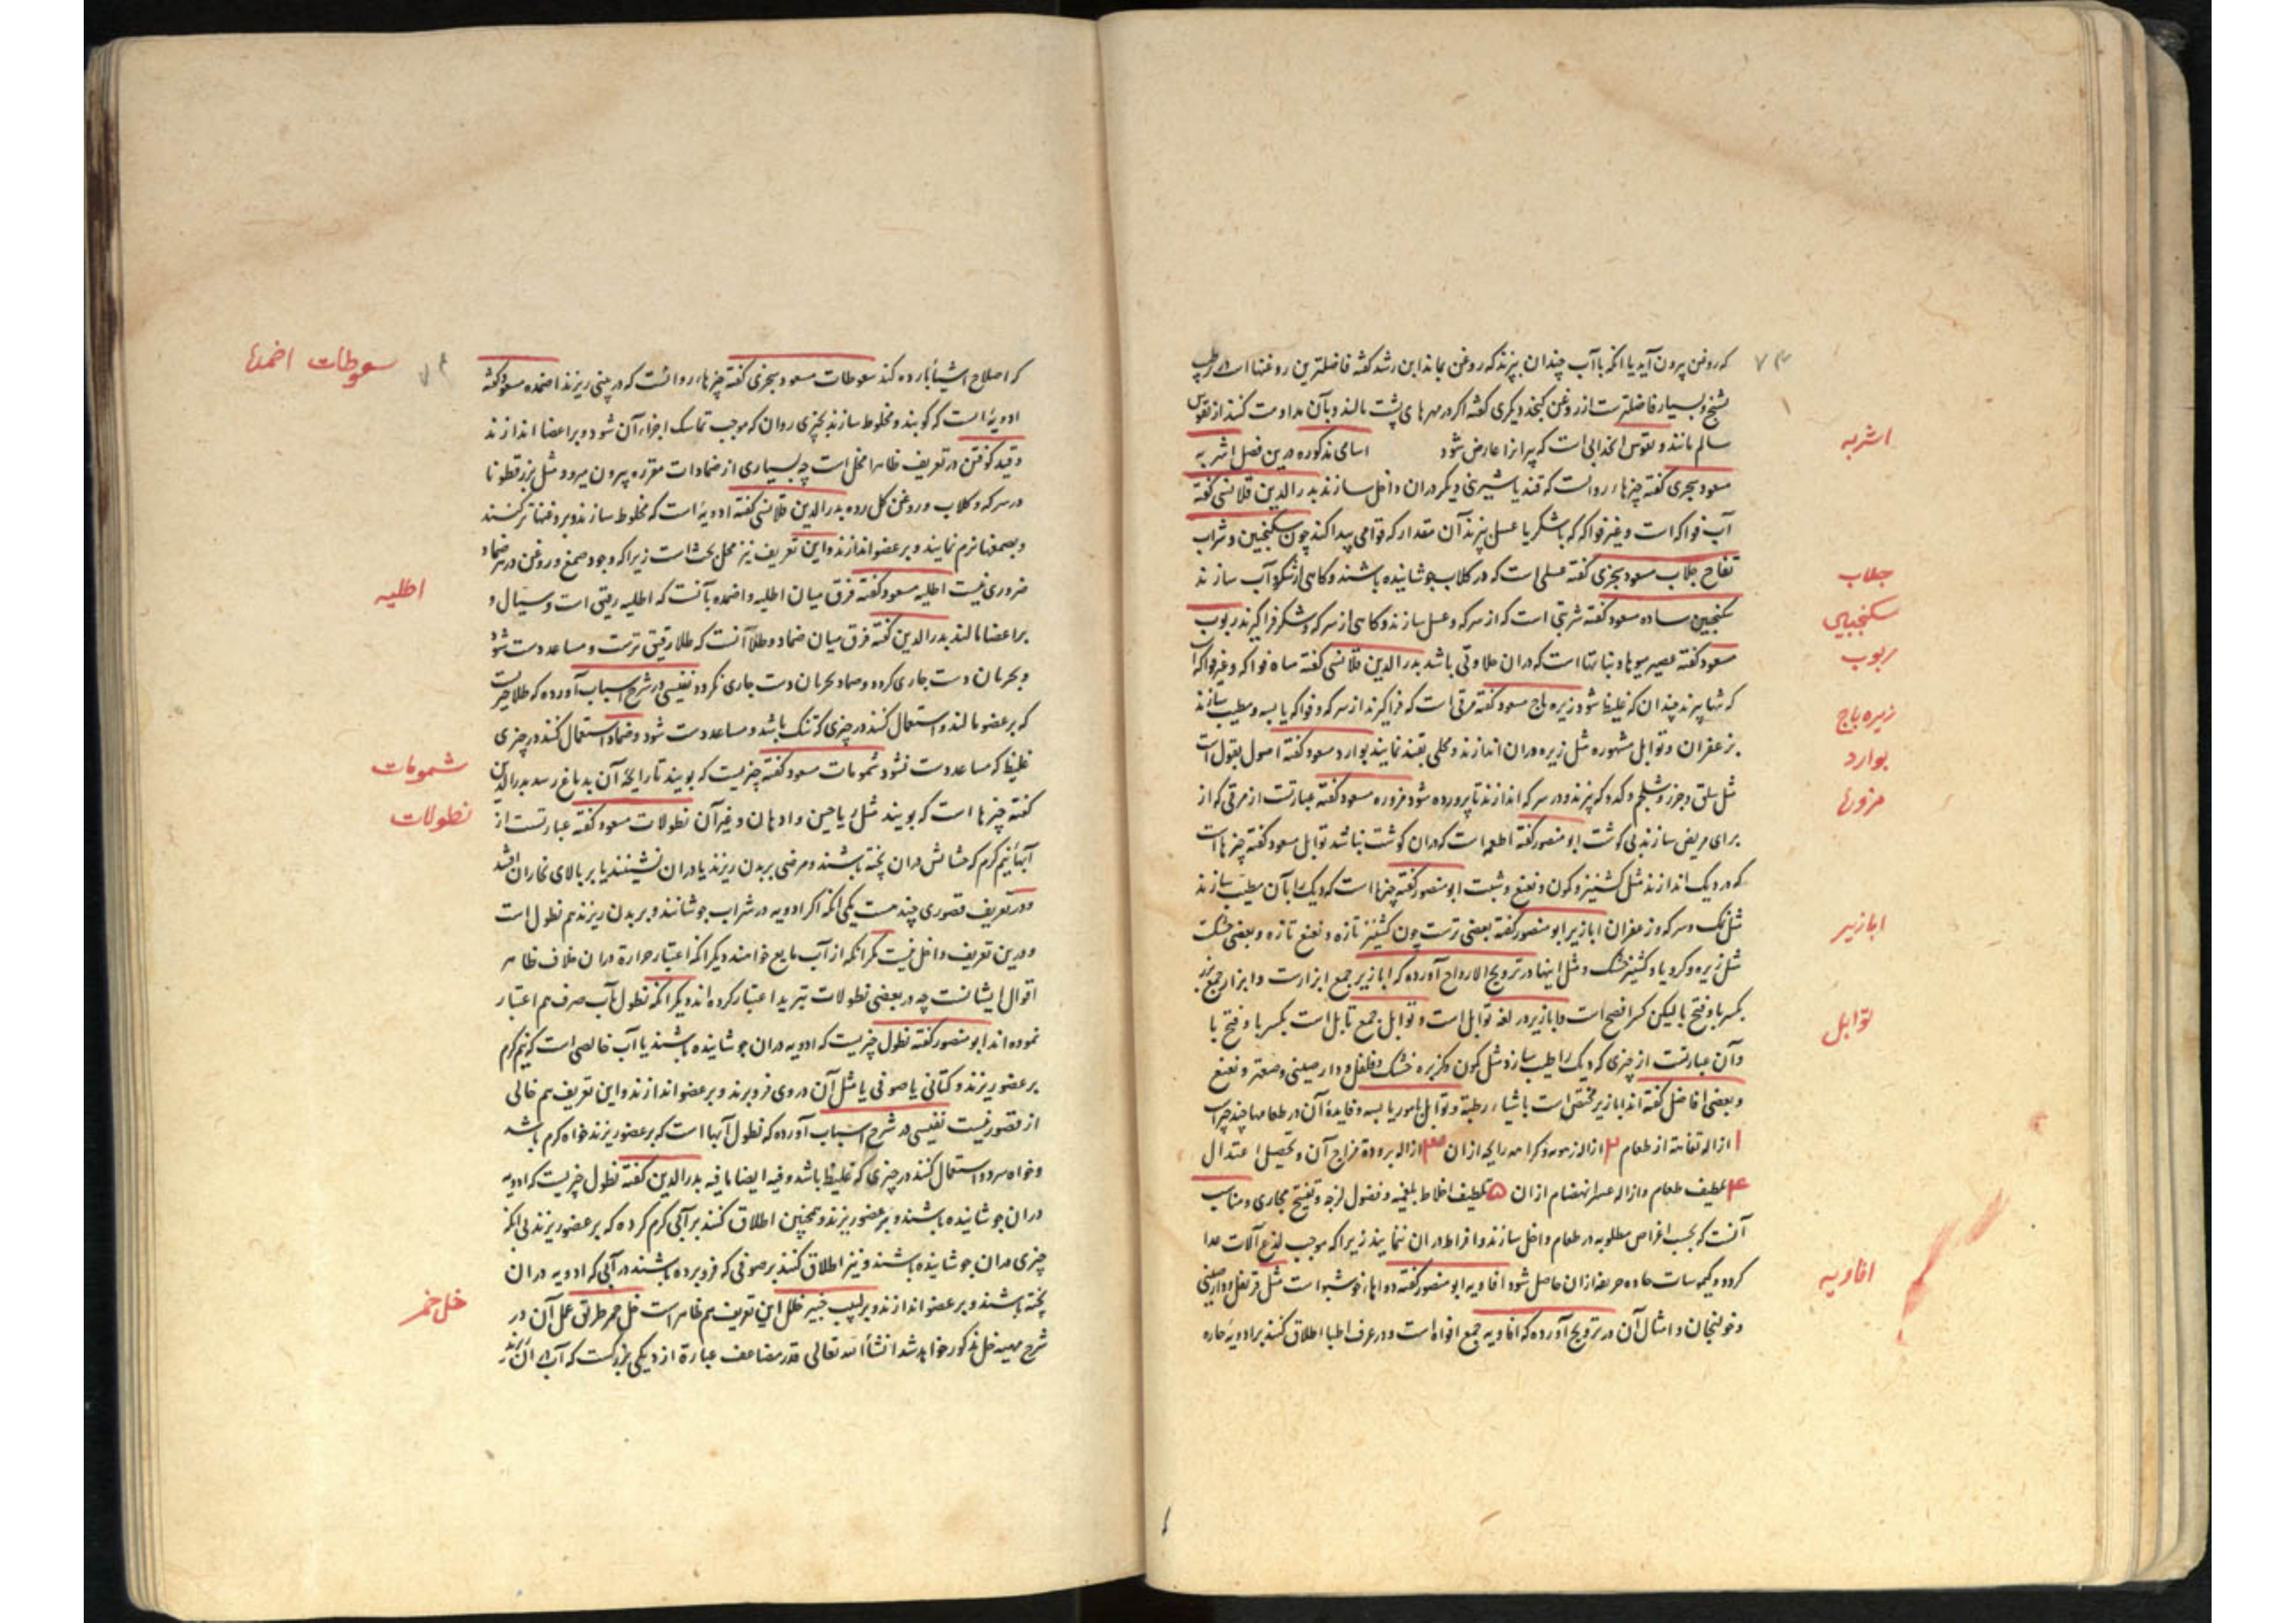 که روغن بیرون آید یا انکه با آب چندان بپزند که روغن بماند ابن رشد گفته فاضلترین روغنها است
تشنج و بسیار فاضلترست از روغن کنجد و دیگری گفته اگر در مهرهای پشت بمالند و بآن مداومت کنند از تقوس
سالم مانند و تقوس انحدابی است که پیرانرا عارض شود اسامی مذکوره درین فصل اشربه
مسعود سجزی گفته چیزهاء روانست که قند یا شیرینی دیگر دران داخل سازند بدرالدین قلانسی گفته
آب فواکه است و غیر فواکه که با شکر یا عسل بپزند آن مقدار که قوامی پیدا کند چون سکنجبین و شراب
تفاح جلاب مسعود سجزی گفته عسلی است که در گلاب جوشانیده باشند و کاهی از شکر و آب سازند
سکنجبین ساده مسعود گفته شربتی است که از سرکه و عسل سازند و کاهی از سرکه و شکر فراگیرند ربوب
مسعود گفته عصیر میوها و نباتها است که دران حلاوتی باشد بدرالدین قلانسی گفته میاه فواکه و غیر فواکه است
که تنها بپزند چندان که غلیظ شود زیره باج مسعود گفته مرقی است که فراگیرند از سرکه و فواکه یابسه و مطیب سازند
بزعفران و توابل مشهوره مثل زیره دران اندازند و محلی بقند نمایند بوارد مسعود گفته اصول بقول است
مثل سلق و جزر و شلجم و کدو که بپزند و در سرکه اندازند تا پرورده شود مزوره مسعود گفته عبارتست از مرقی که از
برای مریض سازند بی گوشت ابو منصور گفته اطعمه است که دران گوشت نباشد توابل مسعود گفته چیزها است
که در دیک اندازند مثل کشنیز و کمون و نعنع و شبت ابو منصور گفته چیزها است که دیک را بآن مطیب سازند
مثل نمک و سرکه و زعفران ابازیر ابو منصور گفته بعضی ترست چون کشنیز تازه و نعنع تازه و بعضی خشکست
مثل زیره و کرویا و کشنیز خشک و مثل اینها در ترویح الارواح آورده که ابازیر جمع ابزارست و ابزار جمع بزر
بکسر با و فتح با لیکن کسر افصح است و ابازیر در لغة توابل است و توابل جمع تابل است بکسر با و فتح با
و آن عبارتست از چیزی که دیک را طیب سازد مثل کمون و کزبره خشک و فلفل و دارصینی و صعتر و نعنع
و بعضی افاضل گفته اند ابازیر مختص است باشیاء رطبة و توابل بامور یابسه و فایدهٔ آن در طعامها چند چیز است
۱ ازاله تفاهتة از طعام ۲ ازاله زهومه و کراهه رایحه ازان ۳ ازاله برودة مزاج آن و تحصیل اعتدال
۴ تلطیف طعام و ازاله عسر انهضام ازان ۵ تلطیف اخلاط بلغمیه و فضول لزجه و تفتیح مجاری و مناسب
آنست که بحسب اغراض مطلوبه در طعام داخل سازند و افراط دران ننمایند زیرا که موجب لذع آلات غذا
کردد و کیموسات حاده حریفه ازان حاصل شود افاویه ابو منصور گفته دواهاء خوشبو است مثل قرنفل و دارصینی
و خولنجان و امثال آن در ترویح آورده که افاویه جمع افواه است و در عرف اطبا اطلاق کنند بر ادویهٔ حاره
اشربه
جلاب
سکنجبین
ربوب
زیره باج
بوارد
مزورها
ابازیر
توابل
افاویه
که اصلاح اشیاء بارده کند سعوطات مسعود سجزی گفته چیزهاء روانست که در بینی ریزند اضمده مسعود گفته
ادویهٔ است که کوبند و مخلوط سازند بچیزی روان که موجب تماسک اجزاء آن شود و بر اعضا اندازند
و قید کوفتن در تعریف ظاهرا مخل است چه بسیاری از ضمادات مقرره بیرون میرود مثل بزرقطونا
در سرکه و گلاب و روغن گل رده بدرالدین قلانسی گفته ادویهٔ است که مخلوط سازند و بروغنها تر کنند
و بصمغها نرم نمایند و بر عضو اندازند و این تعریف نیز محل بحث است زیرا که وجود صمغ و روغن در هر ضماد
ضروری نیست اطلیه مسعود گفته فرق میان اطلیه و اضمده بآنست که اطلیه رقیق است و سیال و
بر اعضا مالند بدرالدین گفته فرق میان ضماد و طلا آنست که طلا رقیق ترست و مساعد دست شود
و بجریان دست جاری کردد و ضماد بجریان دست جاری نکردد نفیسی در شرح اسباب آورده که طلا چیزیست
که بر عضو مالند و استعمال کنند در چیزی که تنک باشد و مساعد دست شود و ضماد استعمال کنند در چیزی
غلیظ که مساعد دست نشود شمومات مسعود گفته چیزیست که بویند تا رایحهٔ آن بدماغ رسد بدرالدین
گفته چیزها است که بویند مثل ریاحین و ادهان و غیر آن نطولات مسعود گفته عبارتست از
آبهاء نیم گرم که حشائش دران پخته باشند و مرضی بر بدن ریزند یا دران نشینند یا بر بالای بخار ان باشد
و در تعریف قصوری چند هست یکی انکه اگر ادویه در شراب جوشانند و بر بدن ریزند هم نطول است
و درین تعریف داخل نیست مگر انکه از آب مایع خواهند دیگر انکه اعتبار حرارة دران خلاف ظاهر
اقوال ایشانست چه در بعضی نطولات تبرید اعتبار کرده اند دیگر انکه نطول بآب صرف هم اعتبار
نموده اند ابو منصور گفته نطول چیزیست که ادویه دران جوشانیده باشند یا آب خالصی است که نیم گرم
بر عضو ریزند و کتانی یا صوفی یا مثل آن در وی فرو برند و بر عضو اندازند و این تعریف هم خالی
از قصور نیست نفیسی در شرح اسباب آورده که نطول آبها است که بر عضو ریزند خواه گرم باشد
و خواه سرد و استعمال کنند در چیزی که غلیظ باشد و فیه ایضا ما فیه بدرالدین گفته نطول چیزیست که ادویه
دران جوشانیده باشند و بر عضو ریزند و همچنین اطلاق کنند بر آبی گرم کرده که بر عضو ریزند بی انکه
چیزی دران جوشانیده باشند و نیز اطلاق کنند بر صوفی که فرو برده باشند در آبی که ادویه دران
پخته باشند و بر عضو اندازند و بر لبیب خبیر خلل این تعریف هم ظاهر است خل خمر طریق عمل آن در
شرح مهیه خل مذکور خواهد شد انشأ الله تعالی قدر مضاعف عبارة از دیکی بزرکست که آب در آن
سعوطات اضمدها
اطلیه
شمومات
نطولات
خل خمر